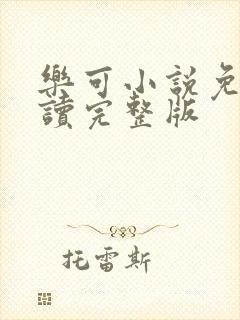 樂可小說免
讀完整版
托雷斯